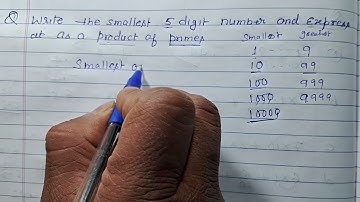 Q Write the smallest 5 digit number and Express
it as a product of primes
Smallest Greatest
Smallest
1 9
10 99
100 999
1000 9999
10000